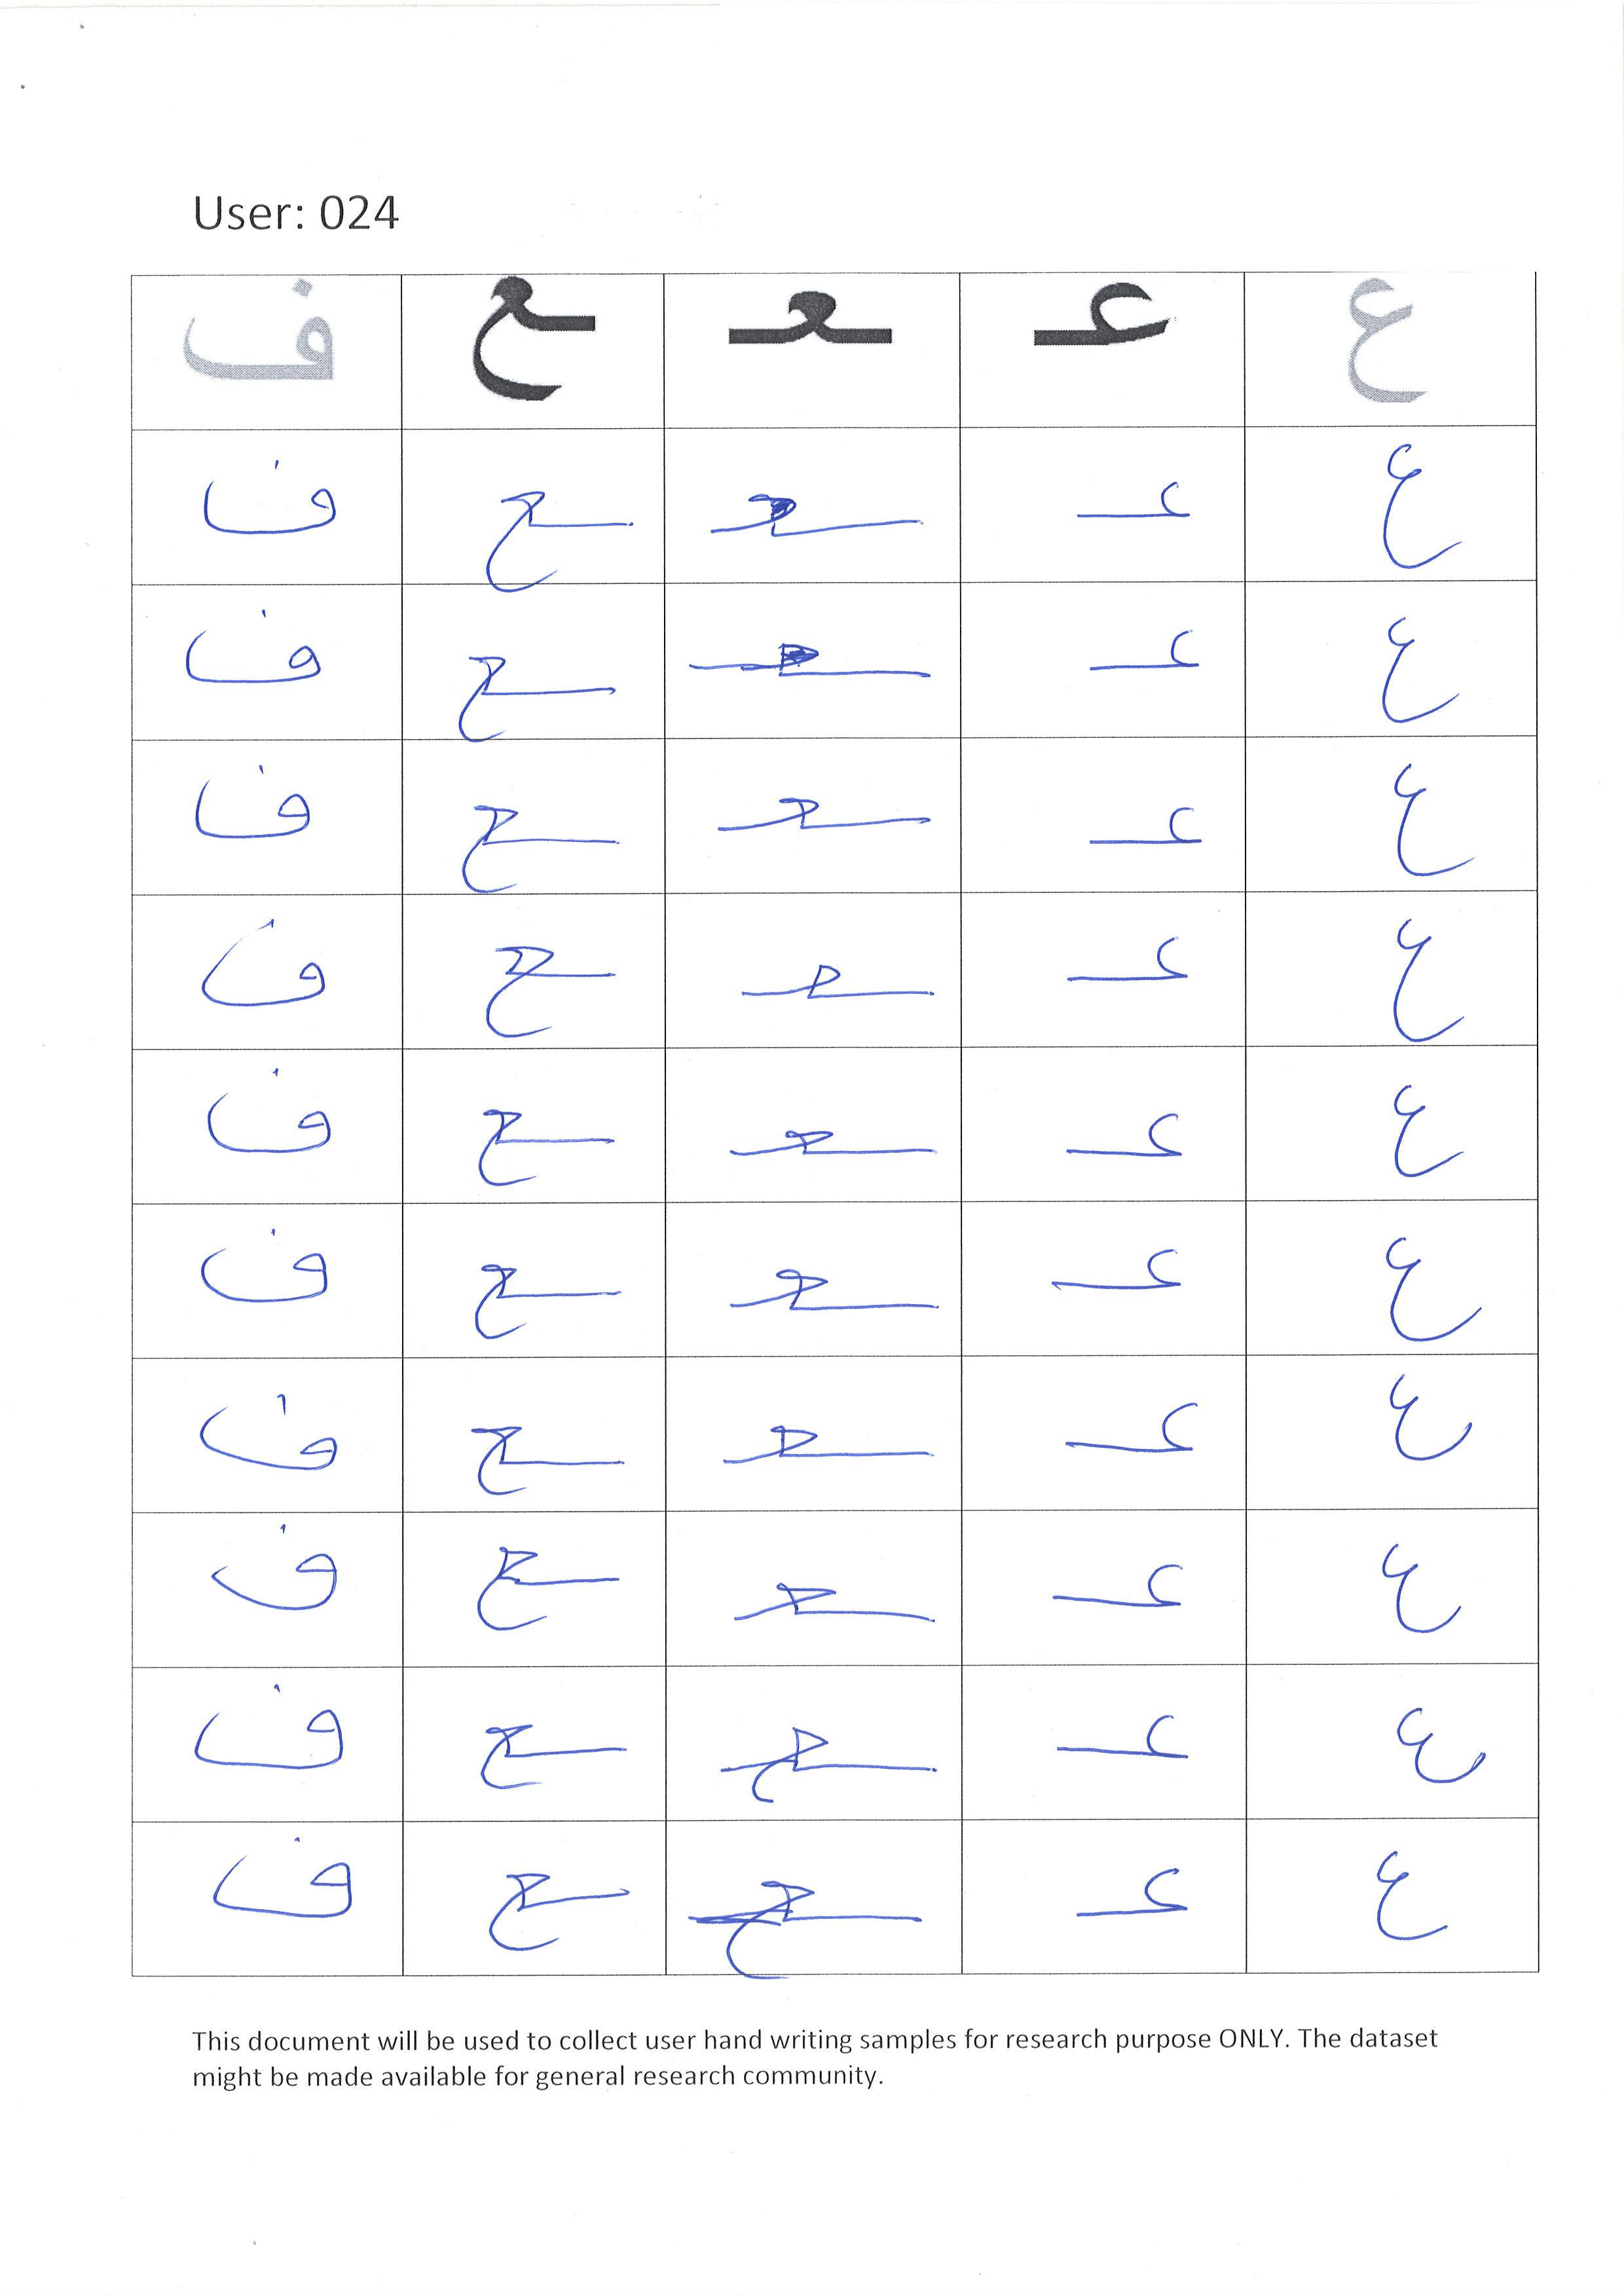 User: 024
ع عـ ـعـ ـع ف
ع عـ ـعـ ـع ف
ع عـ ـعـ ـع ف
ع عـ ـعـ ـع ف
ع عـ ـعـ ـع ف
ع عـ ـعـ ـع ف
ع عـ ـعـ ـع ف
ع عـ ـعـ ـع ف
ع عـ ـعـ ـع ف
ع عـ ـعـ ـع ف
ع عـ ـعـ ـع ف
This document will be used to collect user hand writing samples for research purpose ONLY. The dataset
might be made available for general research community.